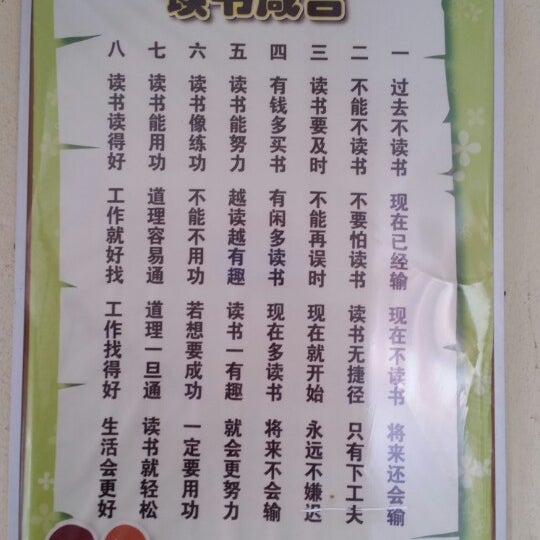 读书箴言
一 过去不读书 现在已经输 现在不读书 将来还会输
二 不能不读书 不要怕读书 读书无捷径 只有下工夫
三 读书要及时 不能再误时 现在就开始 永远不嫌迟
四 有钱多买书 有闲多读书 现在多读书 将来不会输
五 读书能努力 越读越有趣 读书一有趣 就会更努力
六 读书像练功 不能不用功 若想要成功 一定要用功
七 读书能用功 道理容易通 道理一旦通 读书就轻松
八 读书读得好 工作就好找 工作找得好 生活会更好